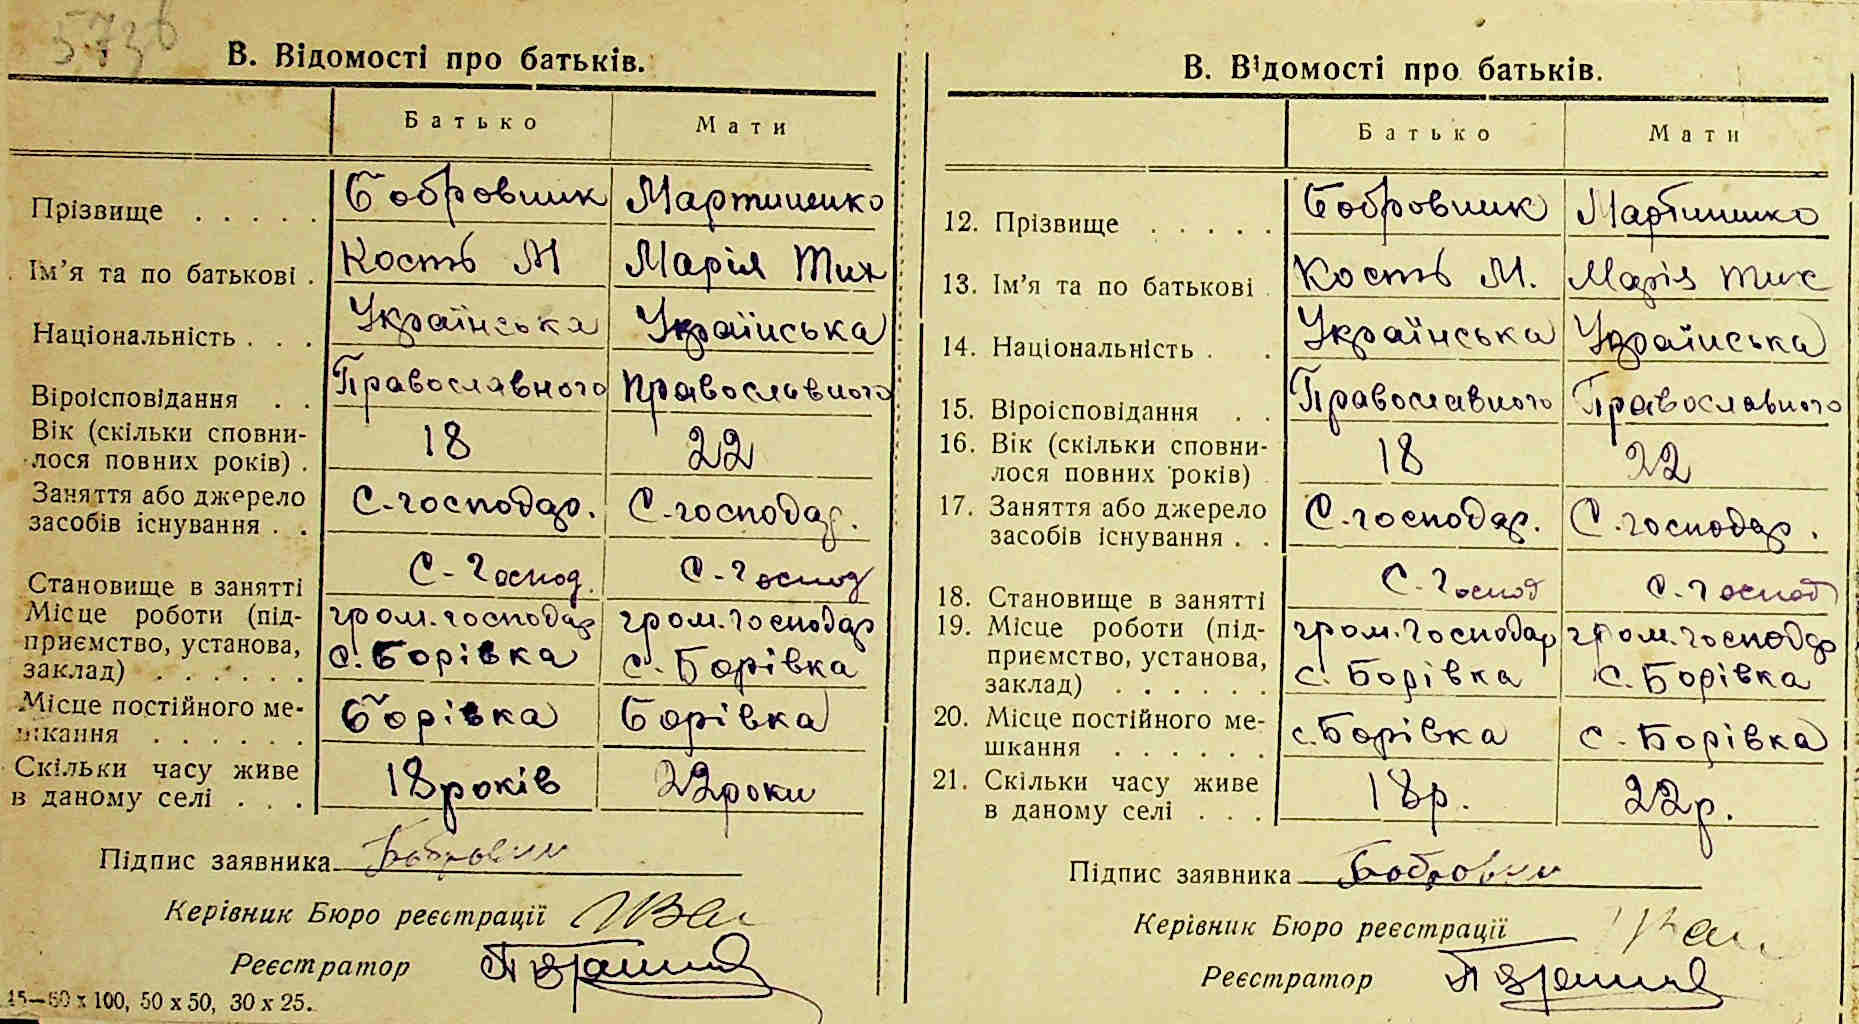 573б
В. Відомості про батьків.
Батько Мати
Прізвище . . . . . Бобровник Мартиненко
Ім’я та по батькові . Кость М Марія Тих
Національність . . . Українська Українська
Віроісповідання . . Православного Православного
Вік (скільки сповни-
лося повних років) . 18 22
Заняття або джерело
засобів існування . . С.-господар. С.-господар.
Становище в занятті С.-Господ. С.-Господ
Місце роботи (під- гром. господар гром. господар
приємство, установа, с. Борівка с. Борівка
заклад) . . . . . .
Місце постійного ме- Борівка Борівка
шкання . . . . . .
Скільки часу живе 18 років 22 роки
в даному селі . . .
Підпис заявника Бобровник
Керівник Бюро реєстрації
Реєстратор
15—60 x 100, 50 x 50, 30 x 25.
В. Відомості про батьків.
Батько Мати
12. Прізвище . . . . . Бобровник Мартиненко
13. Ім’я та по батькові . Кость М. Марія Тих
14. Національність . . Українська Українська
15. Віроісповідання . . Православного Православного
16. Вік (скільки сповни-
лося повних років) 18 22
17. Заняття або джерело
засобів існування . . С.-господар. С.-господар.
18. Становище в занятті С.-Господ С.-Господ
19. Місце роботи (під- гром. господар гром. господар
приємство, установа, с. Борівка с. Борівка
заклад) . . . . . .
20. Місце постійного ме- с. Борівка с. Борівка
шкання . . . . . .
21. Скільки часу живе 18 р. 22 р.
в даному селі . . .
Підпис заявника Бобровник
Керівник Бюро реєстрації
Реєстратор